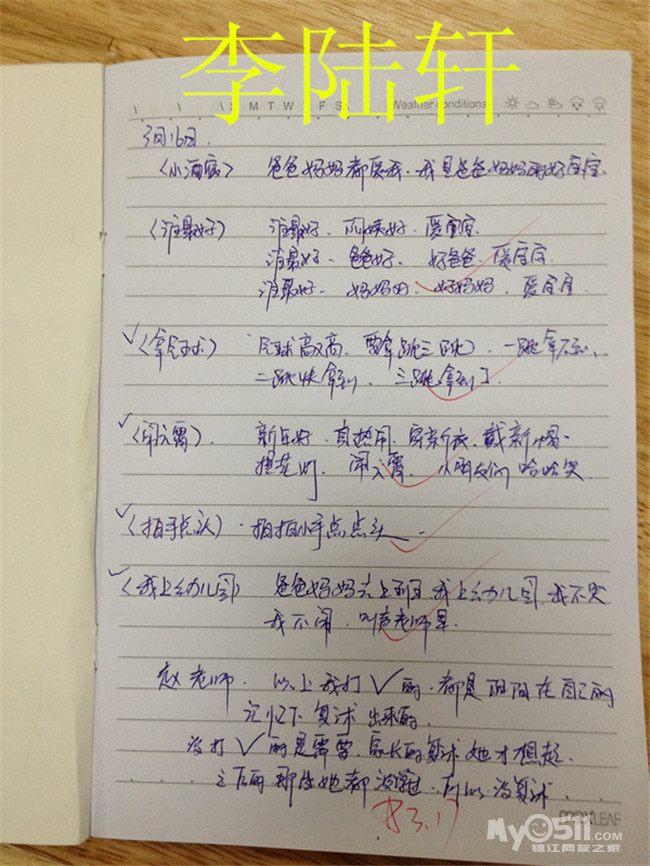 李陆轩
S M T W F S Weather conditions
3月16日.
〈小酒窝〉 爸爸妈妈都爱我. 我是爸爸妈妈的好宝宝.
〈谁最好〉 谁最好. 阿姨好. 爱宝宝.
谁最好. 爸爸好. 好爸爸. 爱宝宝.
谁最好. 妈妈好. 好妈妈. 爱宝宝.
✓〈拿气球〉 气球高又高. 要拿跳三跳. 一跳拿不到.
二跳快拿到. 三跳拿到了.
✓〈闹元宵〉. 新年好. 真热闹. 穿新衣. 戴新帽.
提花灯 闹元宵. 小朋友们哈哈笑.
✓〈拍手点头〉. 拍拍小手点点头.
✓〈我上幼儿园〉 爸爸妈妈去上班 我上幼儿园. 我不哭
我不闹. 叫声老师早.
赵老师. 以上我打✓的. 都是 在自己的
记忆下 复述出来的.
没打✓的是需要 家长的复述她才想起.
之后的那些她都没学过. 所以没复述.
3.17
My0511.com
镇江网友之家